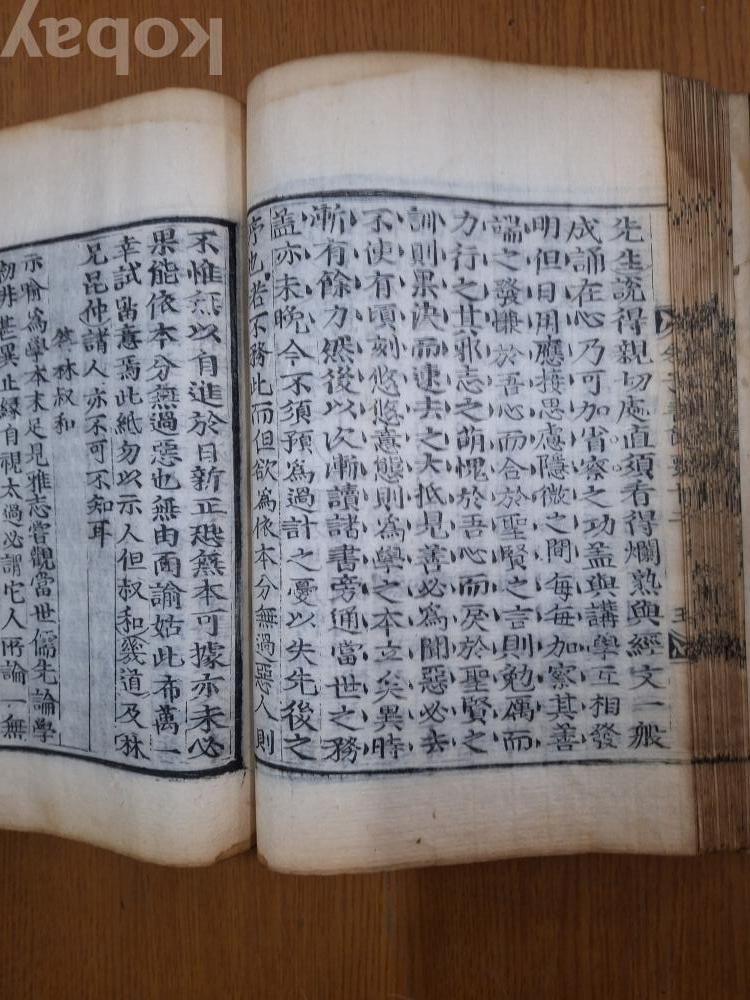 kobay
先生說得親切處直須看得爛熟與經文一般
成誦在心乃可加省察之功蓋與講學互相發
明但日用應接思慮隱微之間每每加察其善
端之發慊於吾心而合於聖賢之言則勉厲而
力行之其邪志之萌愧於吾心而戾於聖賢之
訓則果決而速去之大抵見善必爲聞惡必去
不使有頃刻悠悠意態則爲學之本立矣異時
漸有餘力然後以次漸讀諸書旁通當世之務
蓋亦未晚今不須預爲過計之憂以失先後之
序也若不務此而但欲爲依本分無過惡人則
不惟無以自進於日新正恐無本可據亦未必
果能依本分無過惡也無由面諭姑此布萬一
幸試留意焉此紙勿以示人但叔和幾道及林
兄昆仲諸人亦不可不知耳
答林叔和
示喻爲學本末足見雅志嘗觀當世儒先論學
初非甚異止緣自視太過必謂它人所論一無